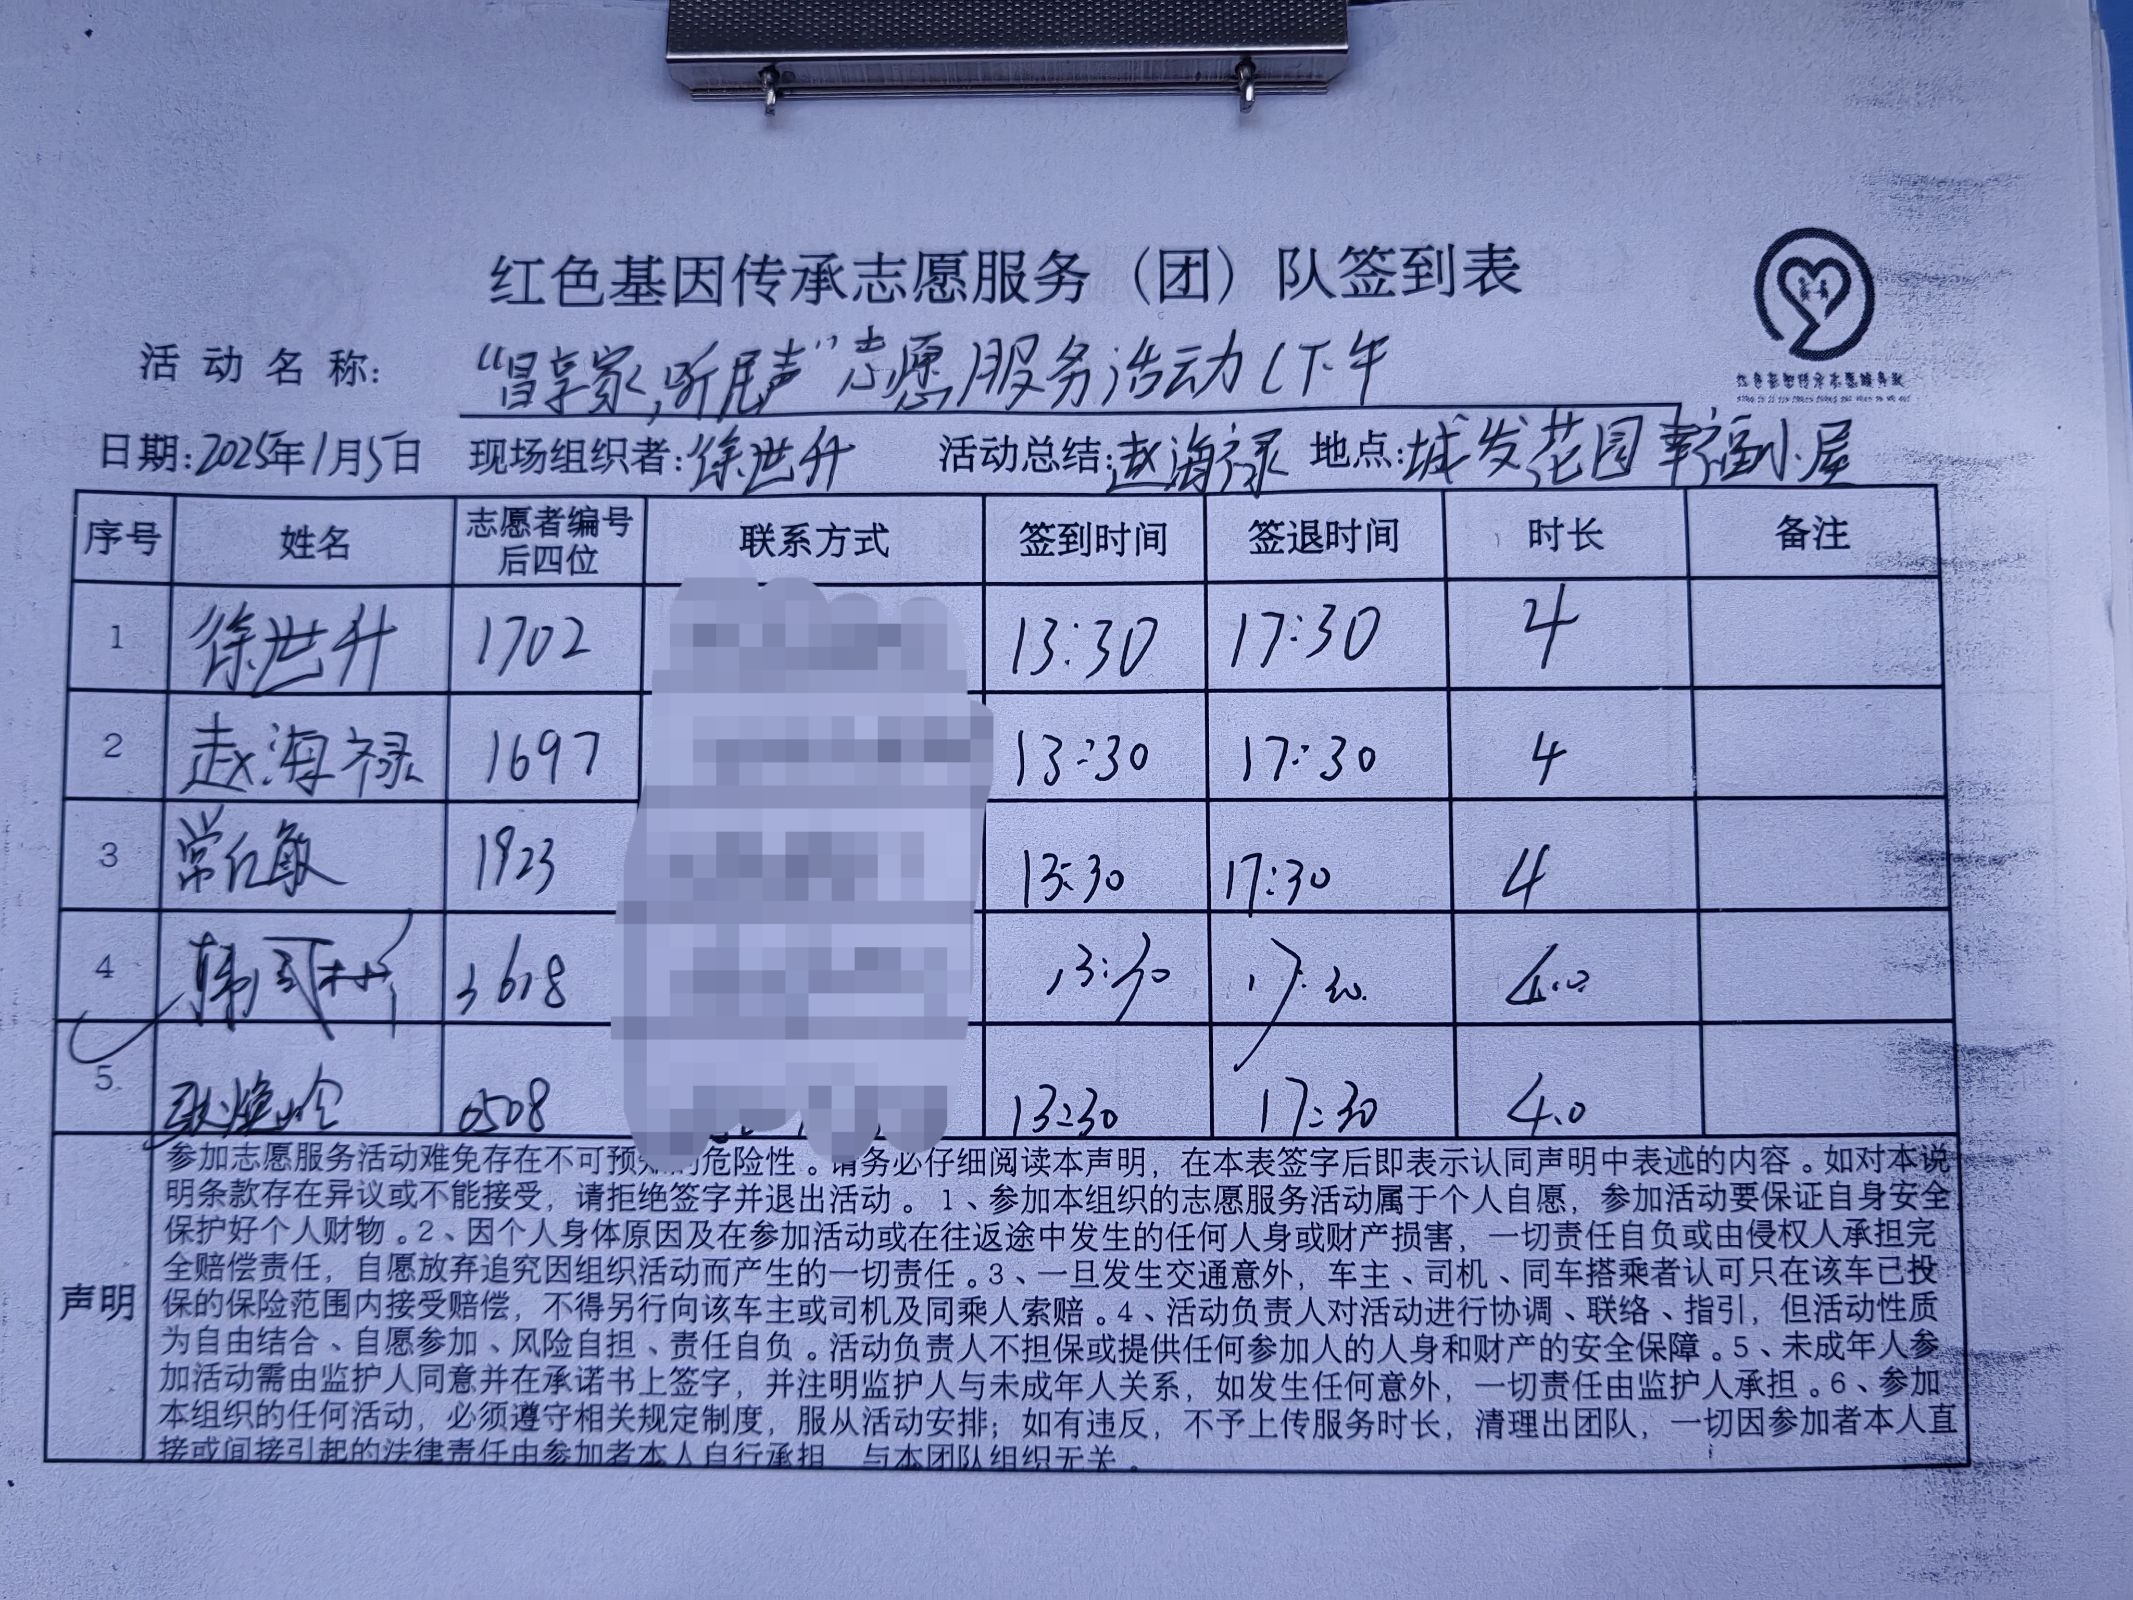 红色基因传承志愿服务（团）队签到表
活动名称: “冒享家,听民声”志愿服务活动(下午
日期:2025年1月5日 现场组织者:徐世升 活动总结:赵海禄 地点:城发花园幸福小屋
序号 姓名 志愿者编号后四位 联系方式 签到时间 签退时间 时长 备注
1 徐世升 1702 13:30 17:30 4
2 赵海禄 1697 13:30 17:30 4
3 常红敏 1923 13:30 17:30 4
4 韩 3618 13:30 17:30 4.0
5 0508 13:30 17:30 4.0
声明
参加志愿服务活动难免存在不可预知的危险性。请务必仔细阅读本声明，在本表签字后即表示认同声明中表述的内容。如对本说
明条款存在异议或不能接受，请拒绝签字并退出活动。1、参加本组织的志愿服务活动属于个人自愿，参加活动要保证自身安全
保护好个人财物。2、因个人身体原因及在参加活动或在往返途中发生的任何人身或财产损害，一切责任自负或由侵权人承担完
全赔偿责任，自愿放弃追究因组织活动而产生的一切责任。3、一旦发生交通意外，车主、司机、同车搭乘者认可只在该车已投
保的保险范围内接受赔偿，不得另行向该车主或司机及同乘人索赔。4、活动负责人对活动进行协调、联络、指引，但活动性质
为自由结合、自愿参加、风险自担、责任自负。活动负责人不担保或提供任何参加人的人身和财产的安全保障。5、未成年人参
加活动需由监护人同意并在承诺书上签字，并注明监护人与未成年人关系，如发生任何意外，一切责任由监护人承担。6、参加
本组织的任何活动，必须遵守相关规定制度，服从活动安排；如有违反，不予上传服务时长，清理出团队，一切因参加者本人直
接或间接引起的法律责任由参加者本人自行承担，与本团队组织无关。